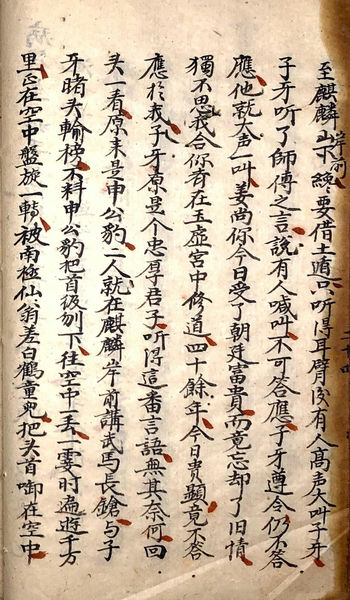 至麒麟山下纔要借土遁只听得耳臂後有人高声大叫子牙
岸前
子牙听了師傅之言說有人喊叫不可答應子牙遵令仍不答
應他就大声一叫姜尚你今日受了朝廷富貴而竟忘却了旧情
獨不思我合你奇在玉虛宮中修道四十餘年今日貴顯竟不答
應於我子牙原是个忠厚君子听得這番言語無其奈何回
头一看原来是申公豹二人就在麒麟岸前講武馬長鎗与子
牙睹头輸榜不料申公豹把首級刎下往空中一丢一霎时遍遊千万
里正在空中盤旅一轉被南極仙翁差白鶴童兒把头首啣在空中